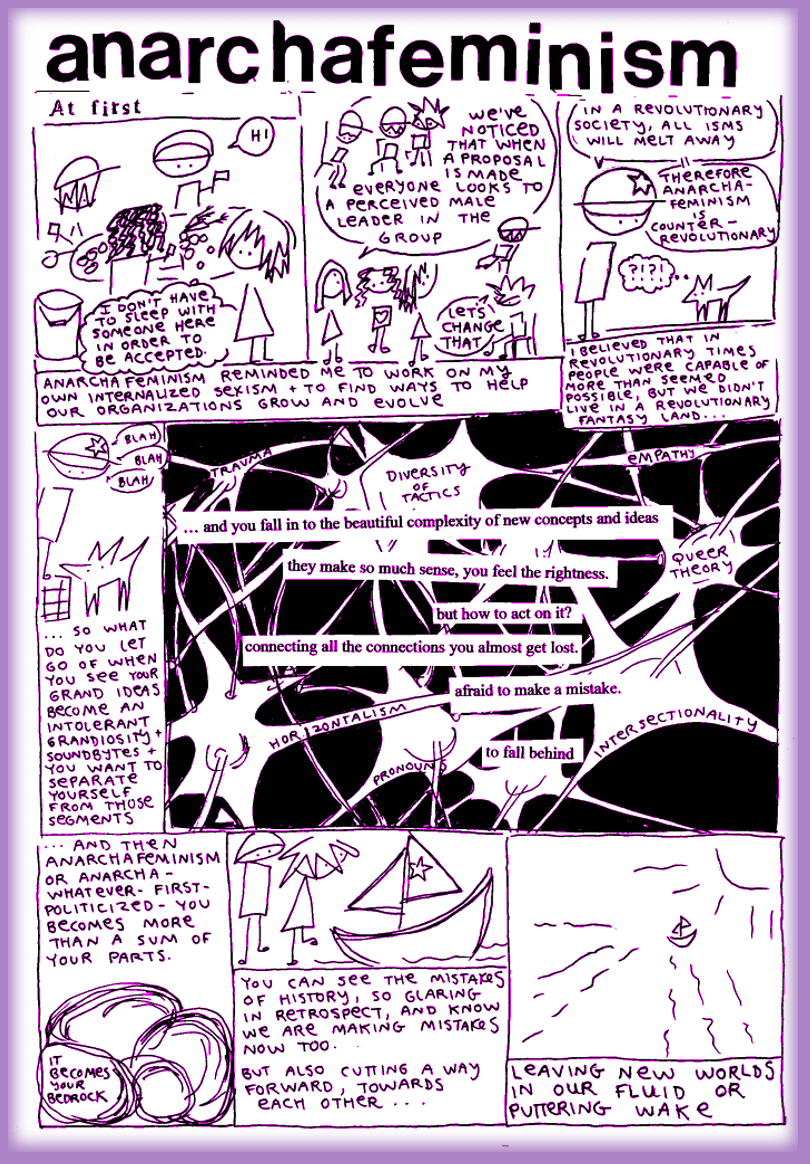 anarchafeminism
At first
HI
I DON'T HAVE
TO SLEEP WITH
SOMEONE HERE
IN ORDER TO
BE ACCEPTED.
WE'VE
NOTICED
THAT WHEN
A PROPOSAL
IS MADE
EVERYONE LOOKS TO
A PERCEIVED MALE
LEADER IN THE
GROUP
LETS
CHANGE
THAT
ANARCHAFEMINISM REMINDED ME TO WORK ON MY
OWN INTERNALIZED SEXISM + TO FIND WAYS TO HELP
OUR ORGANIZATIONS GROW AND EVOLVE
IN A REVOLUTIONARY
SOCIETY, ALL ISMS
WILL MELT AWAY
THEREFORE
ANARCHA-
FEMINISM
IS
COUNTER-
REVOLUTIONARY
?!?!
I BELIEVED THAT IN
REVOLUTIONARY TIMES
PEOPLE WERE CAPABLE OF
MORE THAN SEEMED
POSSIBLE, BUT WE DIDN'T
LIVE IN A REVOLUTIONARY
FANTASY LAND...
BLAH
BLAH
BLAH
... SO WHAT
DO YOU LET
GO OF WHEN
YOU SEE YOUR
GRAND IDEAS
BECOME AN
INTOLERANT
GRANDIOSITY +
SOUNDBYTES +
YOU WANT TO
SEPARATE
YOURSELF
FROM THOSE
SEGMENTS
TRAUMA
DIVERSITY
OF
TACTICS
EMPATHY
... and you fall in to the beautiful complexity of new concepts and ideas
QUEER
THEORY
they make so much sense, you feel the rightness.
but how to act on it?
connecting all the connections you almost get lost.
afraid to make a mistake.
HORIZONTALISM
INTERSECTIONALITY
to fall behind
... AND THEN
ANARCHAFEMINISM
OR ANARCHA-
WHATEVER-FIRST-
POLITICIZED-YOU
BECOMES MORE
THAN A SUM OF
YOUR PARTS.
IT
BECOMES
YOUR
BEDROCK
YOU CAN SEE THE MISTAKES
OF HISTORY, SO GLARING
IN RETROSPECT, AND KNOW
WE ARE MAKING MISTAKES
NOW TOO.
BUT ALSO CUTTING A WAY
FORWARD, TOWARDS
EACH OTHER ...
LEAVING NEW WORLDS
IN OUR FLUID OR
PUTTERING WAKE